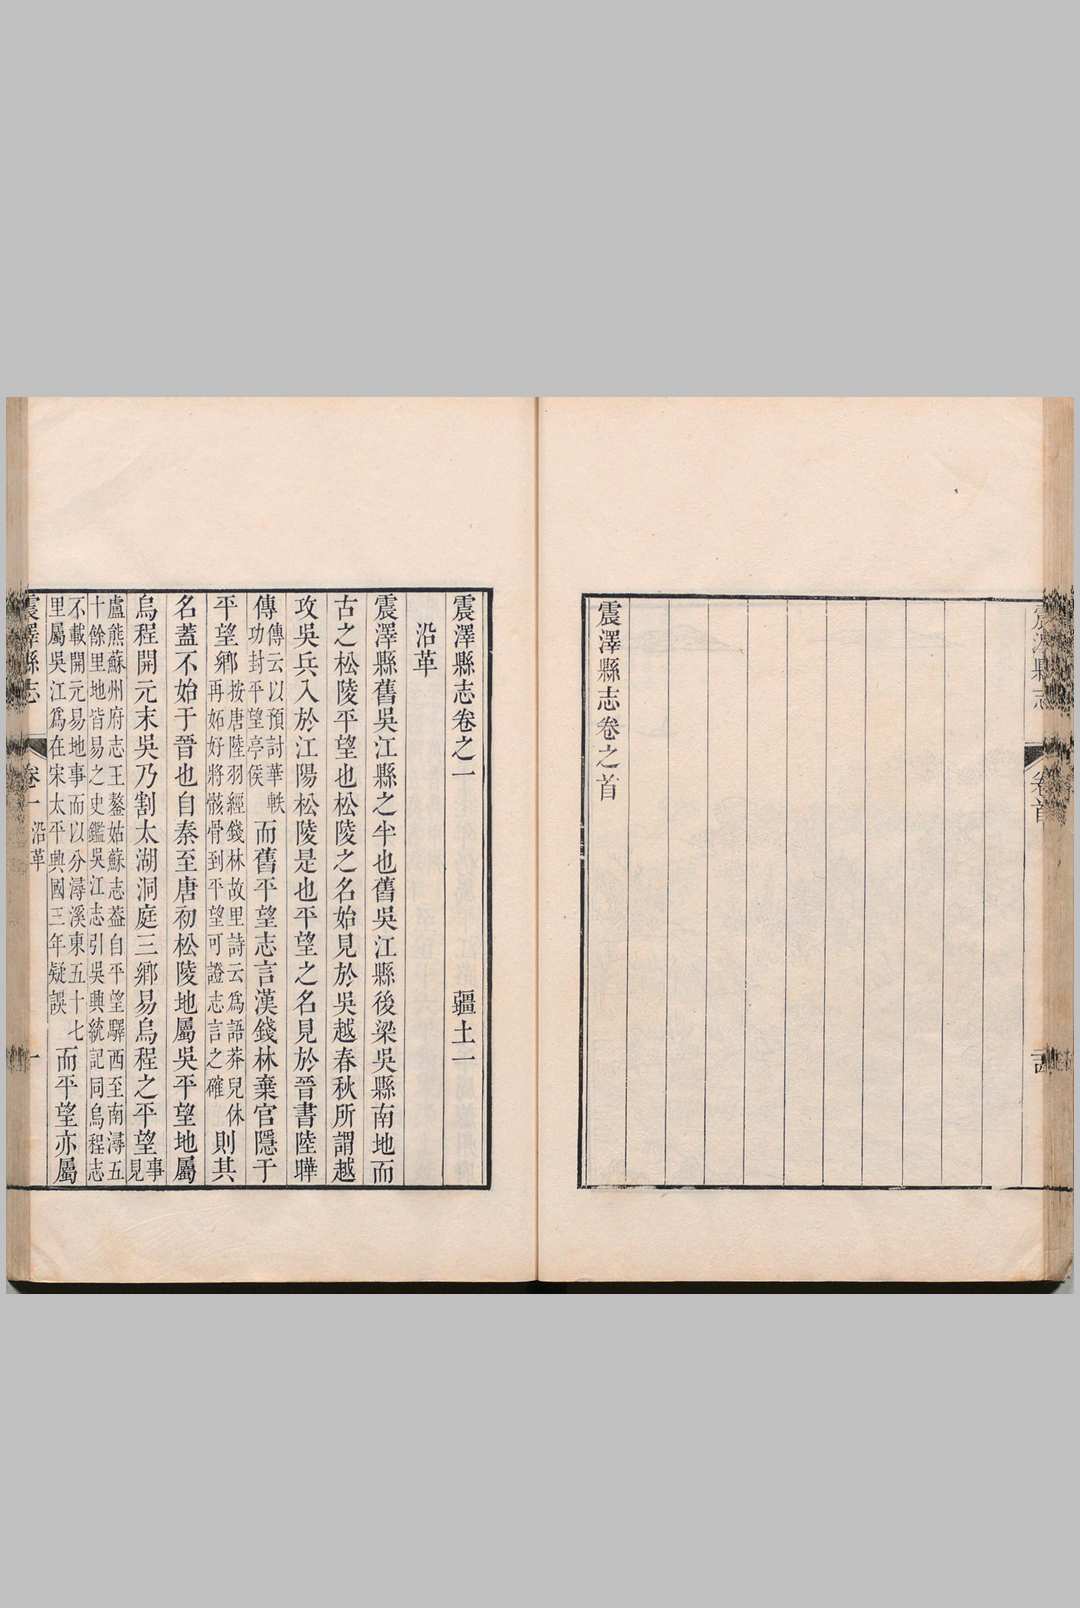 震澤縣志
卷首
震澤縣志卷之首
震澤縣志卷之一　疆土一
沿革
震澤縣舊吳江縣之半也舊吳江縣後梁吳縣南地而
古之松陵平望也松陵之名始見於吳越春秋所謂越
攻吳兵入於江陽松陵是也平望之名見於晉書陸曄
傳
傳云以預討華軼
功封平望亭侯
而舊平望志言漢錢林棄官隱于
平望鄉
按唐陸羽經錢林故里詩云爲語莽兒休
再妬好將骸骨到平望可證志言之確
則其
名蓋不始于晉也自秦至唐初松陵地屬吳平望地屬
烏程開元末吳乃割太湖洞庭三鄉易烏程之平望
事
見
盧熊蘇州府志王鏊姑蘇志葢自平望驛西至南潯五
十餘里地皆易之史鑑吳江志引吳興統記同烏程志
不載開元易地事而以分潯溪東五十七
里屬吳江爲在宋太平興國三年疑誤
而平望亦屬
震澤縣志
卷一
沿革
一